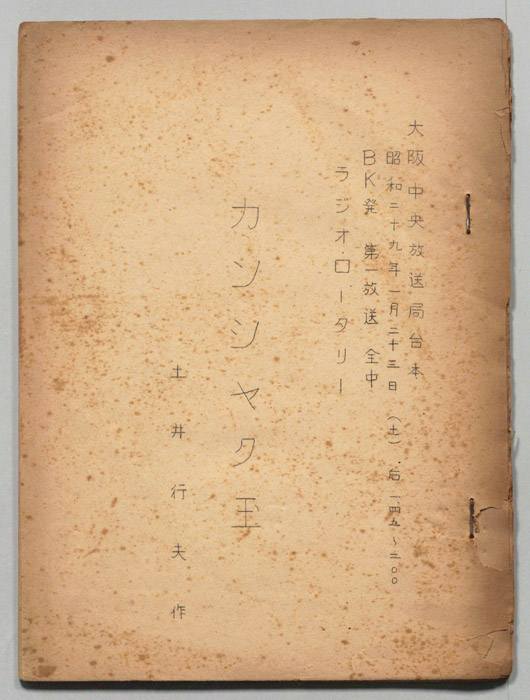 大阪中央放送局台本
昭和二十九年一月二十三日(土)后一.四五~二.〇〇
BK発 第一放送 全中
ラジオ・ロータリー
カンシャク玉
土井行夫作